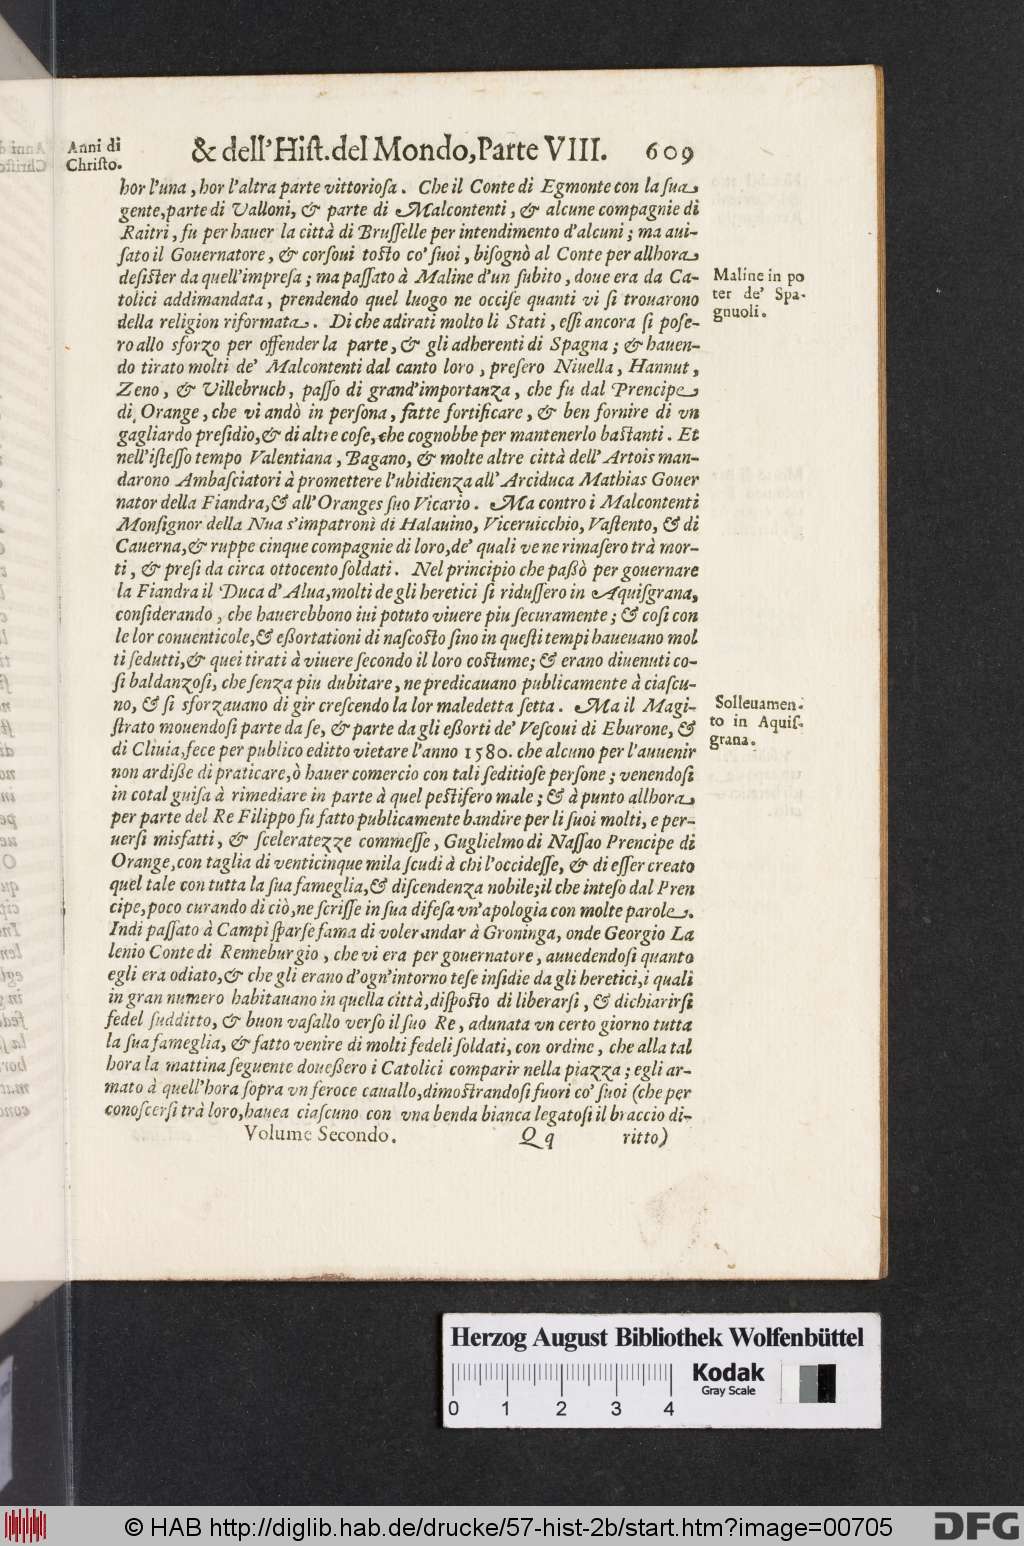 Anni di
Christo.
& dell'Hiſt. del Mondo, Parte VIII. 609
hor l'una, hor l'altra parte vittorioſa. Che il Conte di Egmonte con la ſua
gente, parte di Valloni, & parte di Malcontenti, & alcune compagnie di
Raitri, fu per hauer la città di Bruſſelle per intendimento d'alcuni; ma aui-
ſato il Gouernatore, & corſoui toſto co' ſuoi, biſognò al Conte per allhora
deſiſter da quell'impreſa; ma paſſato à Maline d'un ſubito, doue era da Ca-
tolici addimandata, prendendo quel luogo ne occiſe quanti vi ſi trouarono
della religion riformata. Di che adirati molto li Stati, eſſi ancora ſi poſe-
ro allo sforzo per offender la parte, & gli adherenti di Spagna; & hauen-
do tirato molti de' Malcontenti dal canto loro, preſero Niuella, Hannut,
Zeno, & Villebruch, paſſo di grand'importanza, che fu dal Prencipe
di Orange, che vi andò in perſona, fatte fortificare, & ben fornire di vn
gagliardo preſidio, & di altre coſe, che cognobbe per mantenerlo baſtanti. Et
nell'iſteſſo tempo Valentiana, Bagano, & molte altre città dell'Artois man-
darono Ambaſciatori à promettere l'ubidienza all'Arciduca Mathias Gouer
nator della Fiandra, & all'Oranges ſuo Vicario. Ma contro i Malcontenti
Monſignor della Nua s'impatronì di Halauino, Viceruicchio, Vaſtento, & di
Cauerna, & ruppe cinque compagnie di loro, de' quali ve ne rimaſero trà mor-
ti, & preſi da circa ottocento ſoldati. Nel principio che paßò per gouernare
la Fiandra il Duca d'Alua, molti de gli heretici ſi riduſſero in Aquiſgrana,
conſiderando, che hauerebbono iui potuto viuere piu ſecuramente; & coſi con
le lor conuenticole, & eßortationi di naſcoſto ſino in queſti tempi haueuano mol
ti ſedutti, & quei tirati à viuere ſecondo il loro coſtume; & erano diuenuti co-
ſi baldanzoſi, che ſenza piu dubitare, ne predicauano publicamente à ciaſcu-
no, & ſi sforzauano di gir creſcendo la lor maledetta ſetta. Ma il Magi-
ſtrato mouendoſi parte da ſe, & parte da gli eßorti de' Veſcoui di Eburone, &
di Cliuia, fece per publico editto vietare l'anno 1580. che alcuno per l'auuenir
non ardiße di praticare, ò hauer comercio con tali ſeditioſe perſone; venendoſi
in cotal guiſa à rimediare in parte à quel peſtifero male; & à punto allhora
per parte del Re Filippo fu fatto publicamente bandire per li ſuoi molti, e per-
uerſi misfatti, & ſceleratezze commeſſe, Guglielmo di Naſſao Prencipe di
Orange, con taglia di venticinque mila ſcudi à chi l'occideſſe, & di eſſer creato
quel tale con tutta la ſua fameglia, & diſcendenza nobile; il che inteſo dal Pren
cipe, poco curando di ciò, ne ſcriſſe in ſua difeſa vn'apologia con molte parole.
Indi paſſato à Campi ſparſe fama di voler andar à Groninga, onde Georgio La
lenio Conte di Renneburgio, che vi era per gouernatore, auuedendoſi quanto
egli era odiato, & che gli erano d'ogn'intorno teſe inſidie da gli heretici, i quali
in gran numero habitauano in quella città, diſpoſto di liberarſi, & dichiarirſi
fedel ſudditto, & buon vaſallo verſo il ſuo Re, adunata vn certo giorno tutta
la ſua fameglia, & fatto venire di molti fedeli ſoldati, con ordine, che alla tal
hora la mattina ſeguente doueßero i Catolici comparir nella piazza; egli ar-
mato à quell'hora ſopra vn feroce cauallo, dimoſtrandoſi fuori co' ſuoi (che per
conoſcerſi trà loro, hauea ciaſcuno con vna benda bianca legatoſi il braccio di-
Volume Secondo. Qq ritto)
Maline in po
ter de' Spa-
gnuoli.
Solleuamen-
to in Aquiſ-
grana.
Herzog August Bibliothek Wolfenbüttel
Kodak
Gray Scale
0 1 2 3 4
© HAB http://diglib.hab.de/drucke/57-hist-2b/start.htm?image=00705
DFG